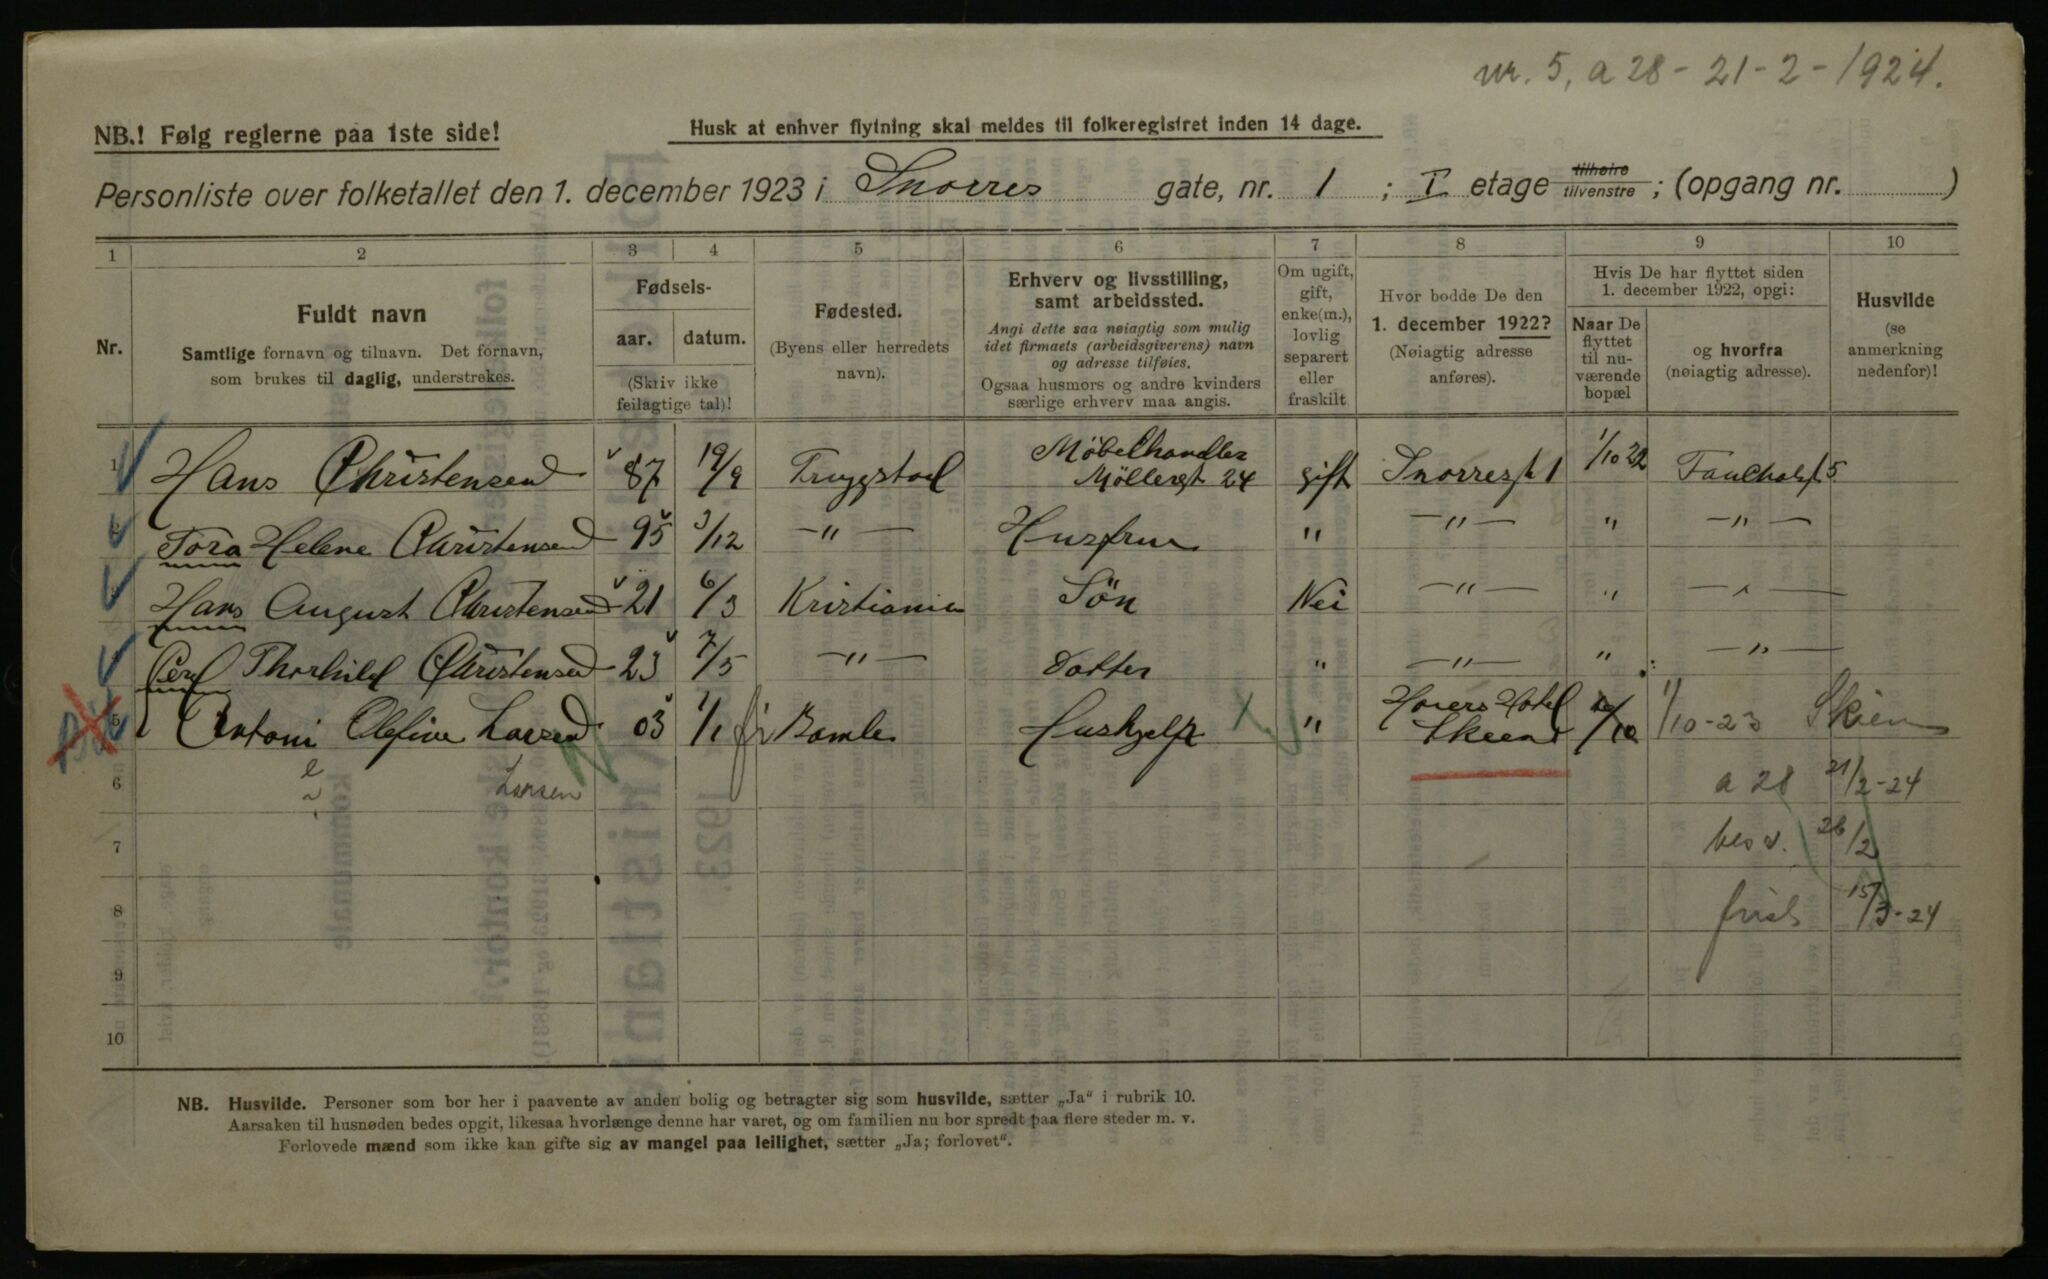 nr. 5, a 28 - 21 - 2 - 1924.
NB.! Følg reglerne paa 1ste side!
Husk at enhver flytning skal meldes til folkeregistret inden 14 dage.
Personliste over folketallet den 1. december 1923 i Snorres gate, nr. 1 ; I etage tilhøire tilvenstre ; (opgang nr. )
1 2 3 4 5 6 7 8 9 10
Nr.
Fuldt navn
Samtlige fornavn og tilnavn. Det fornavn,
som brukes til daglig, understrekes.
Fødsels-
aar. datum.
(Skriv ikke
feilagtige tal)!
Fødested.
(Byens eller herredets
navn).
Erhverv og livsstilling,
samt arbeidssted.
Angi dette saa nøiagtig som mulig
idet firmaets (arbeidsgiverens) navn
og adresse tilføies.
Ogsaa husmors og andre kvinders
særlige erhverv maa angis.
Om ugift,
gift,
enke(m.),
lovlig
separert
eller
fraskilt
Hvor bodde De den
1. december 1922?
(Nøiagtig adresse
anføres).
Hvis De har flyttet siden
1. december 1922, opgi:
Naar De
flyttet
til nu-
værende
bopæl
og hvorfra
(nøiagtig adresse).
Husvilde
(se
anmerkning
nedenfor)!
1 Hans Christensen 87 19/9 Trygstad Møbelhandler
Møllergt 24 gift Snorresgt 1 1/10 22
2 Tora Helene Christensen 95 3/12 — " — Husfrue " — " — " — " —
3 Hans August Christensen 21 6/3 Kristiania Søn Nei — " — " — " —
Thorhild Christensen 23 7/5 — " — Dotter " — " — " — " —
5 Antoni Olefine Larsen 03 1/1 Bamle Hushjelp " Høiers Hotel
Skien 1/10-23 Skien
6 e Larsen a 28 21/2-24
7 bes v. 26/2
8 15/3-24
9
10
NB. Husvilde. Personer som bor her i paavente av anden bolig og betragter sig som husvilde, sætter „Ja" i rubrik 10.
Aarsaken til husnøden bedes opgit, likesaa hvorlænge denne har varet, og om familien nu bor spredt paa flere steder m. v.
Forlovede mænd som ikke kan gifte sig av mangel paa leilighet, sætter „Ja; forlovet".